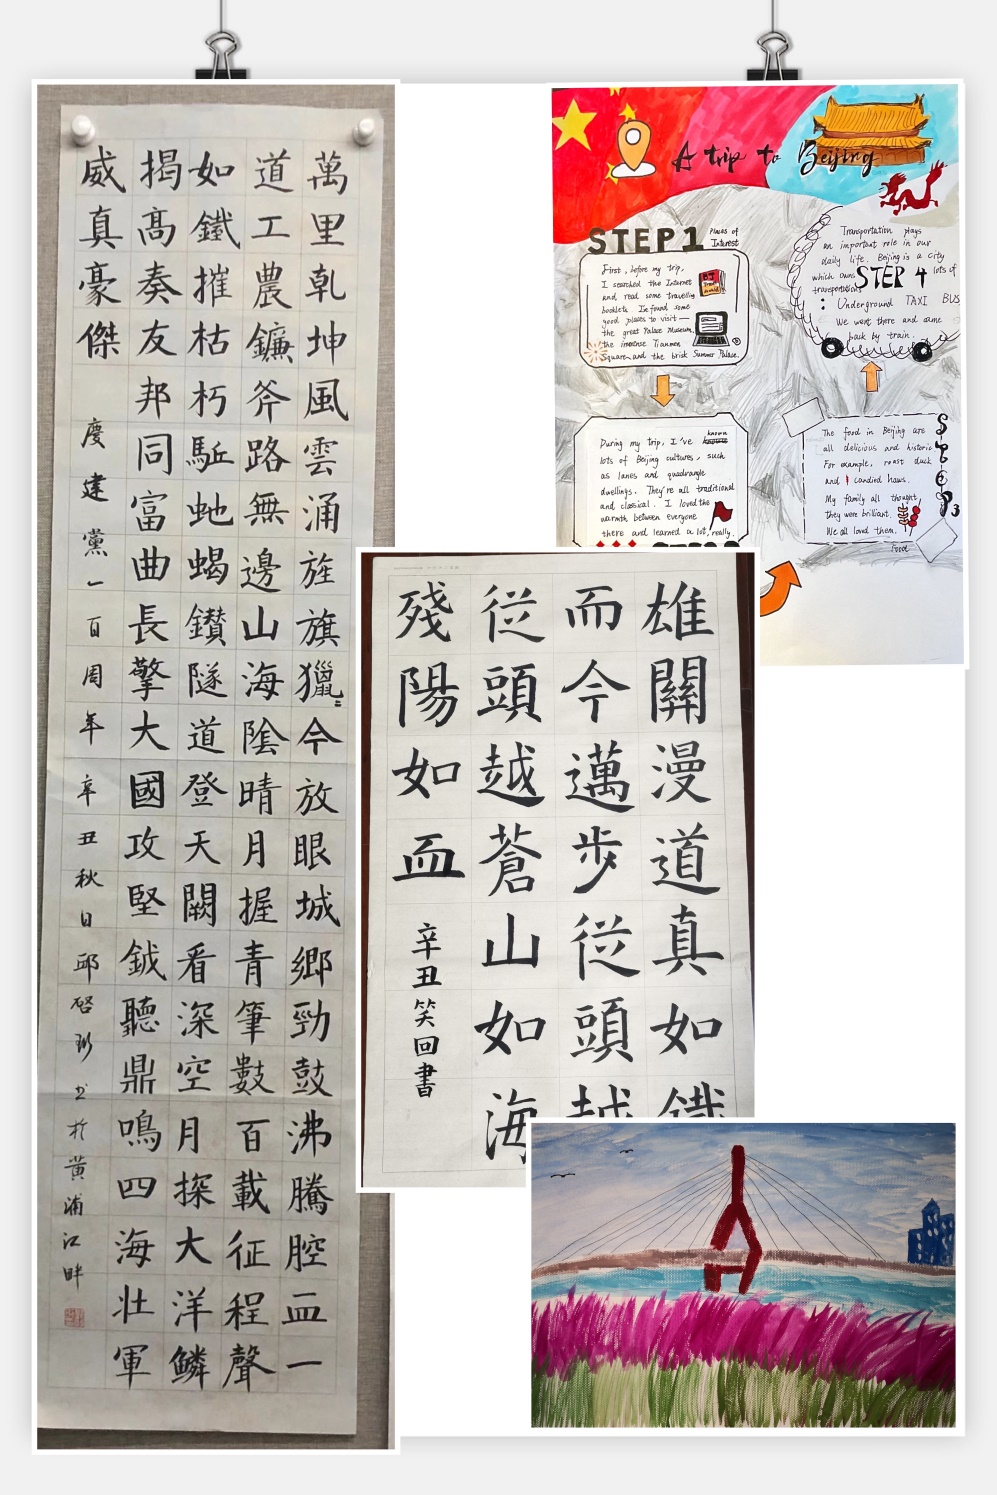 萬里乾坤風雲涌旌旗獵〻今放眼城鄉勁鼓沸騰腔血一
道工農鐮斧路無邊山海陰晴月握青筆數百載征程聲
如鐵摧枯朽駈虵蝎鑽隧道登天闕看深空月探大洋鱗
揭高奏友邦同富曲長擎大國攻堅鉞聽鼎鳴四海壯軍
威真豪傑
慶建黨一百周年辛丑秋日邱啓书於黄浦江畔
A trip to Beijing
STEP1
Places of
Interest
First, before my trip,
I searched the Internet
and read some traveling
booklets. I n found some
good places to visit —
the great Palace Museum,
the immense Tianmen
Square and the brisk Summer Palace.
During my trip, I've known
lots of Beijing cultures, such
as lanes and quadrangle
dwellings. They're all traditional
and classical. I loved the
warmth between everyone
there and learned a lot, really.
STEP3
The food in Beijing are
all delicious and historic
For example, roast duck
and candied haws.
My family all thought
they were brilliant.
We all loved them.
Food
STEP 4
Transportation plays
an important role in our
daily life. Beijing is a city
which owns lots of
transportations
: Underground TAXI BUS
We went there and came
back by train.
雄關漫道真如鐵
而今邁步從頭越
從頭越蒼山如海
殘陽如血
辛丑笑回書